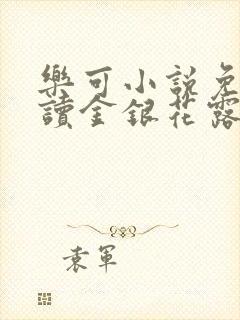 樂可小說免
讀金銀花露
袁軍